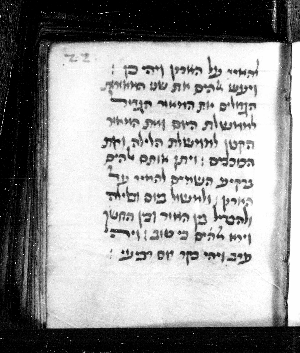 להאיר על הארץ ויהי כן :
ויעש אלהים את שני המאורות
הגדולים את המאור הגדול
לממשלת היום ואת המאור
הקטן לממשלת הלילה ואת
הככבים : ויתן אותם אלהים
ברקיע השמים להאיר על
הארץ : ולמשול ביום ובלילה
ולהבדיל בין האור ובין החשך
וירא אלהים כי טוב : ויהי
ערב ויהי בקר יום רביעי :